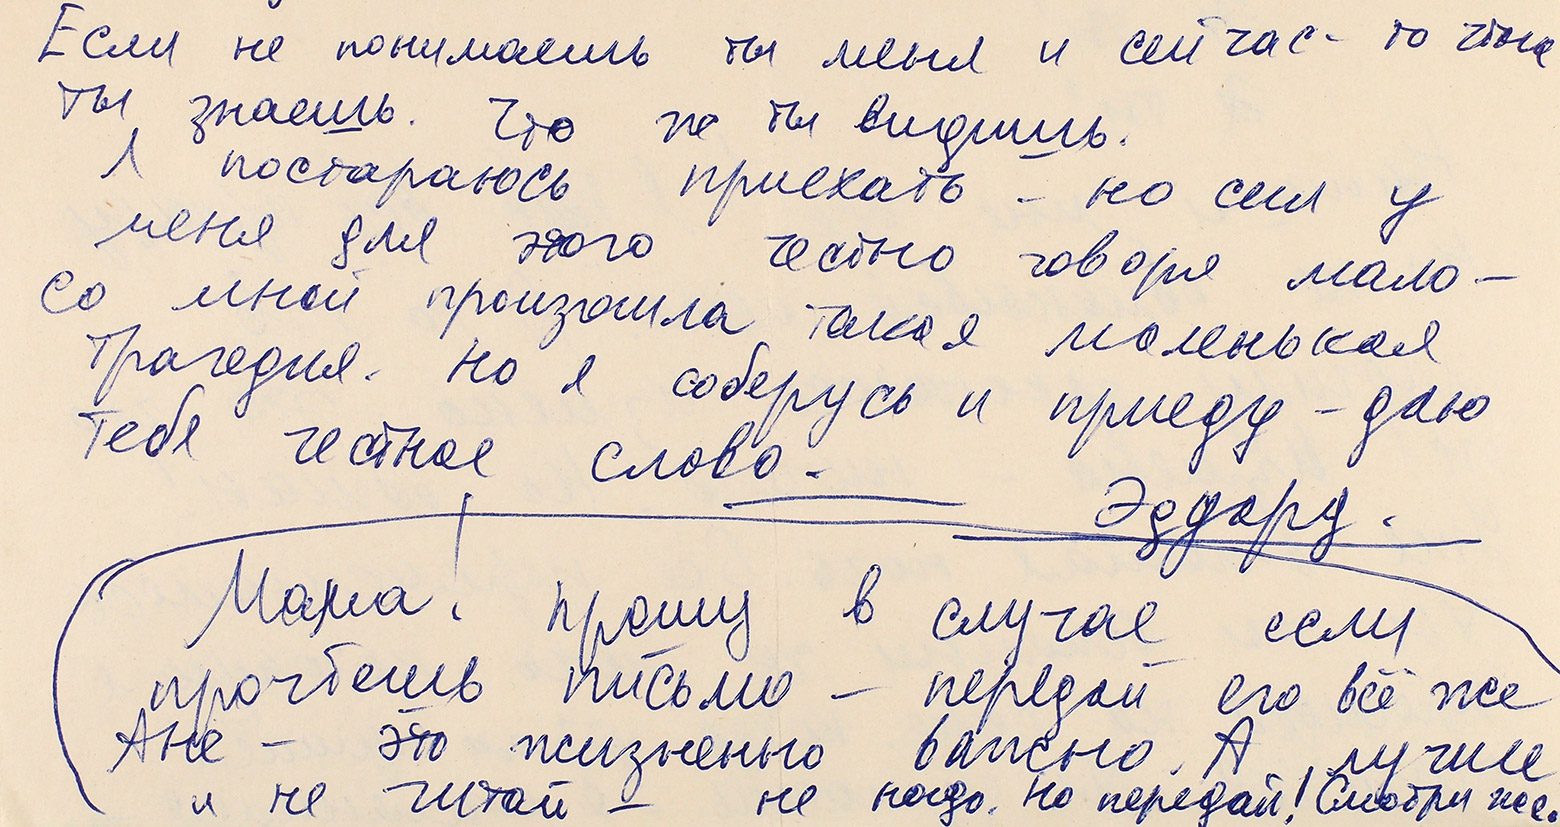 Если не понимаешь ты меня и сейчас - то что же
ты знаешь. Что же ты видишь.
Я постараюсь приехать - но сил у
меня для этого честно говоря мало -
со мной произошла такая маленькая
трагедия. Но я соберусь и приеду - даю
тебе честное слово.
Эдуард.
Мама! Прошу в случае если
прочтешь письмо - передай его всё же
Ане - это жизненно важно. А лучше
и не читай - не надо. Но передай! Смотри же.